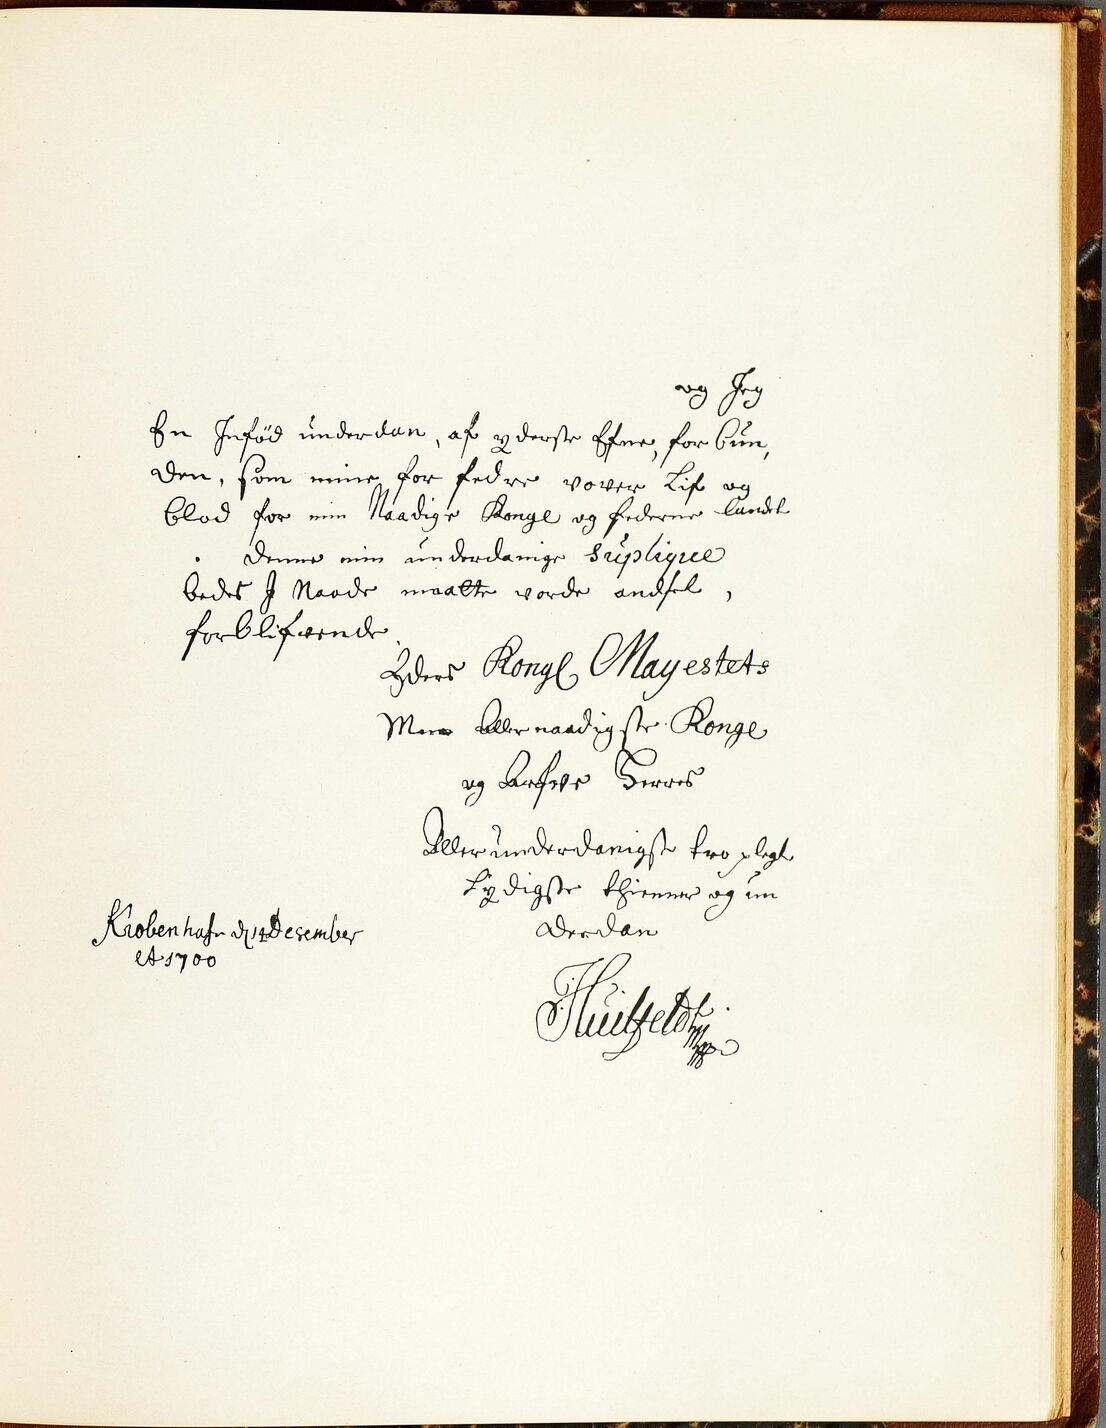 og Jeg
En Inföd ünderdan, af yderste Efne, for bün,
den, som mine for fedre vover Lif og
blod for min Naadige Konge og federne landet
denne min ünderdanige süpliqüe
bedes J Naade maatte vorde andsel,
forblifvende
Eders Kongl Mayestets
Min Aller naadigste Konge
og Arfve Herres
Aller ünderdanigst tro plegt
Lydigste thienner og ün
derdan
Kiobenhafn d 14 Desember
Ao 1700
Hüitfeldt